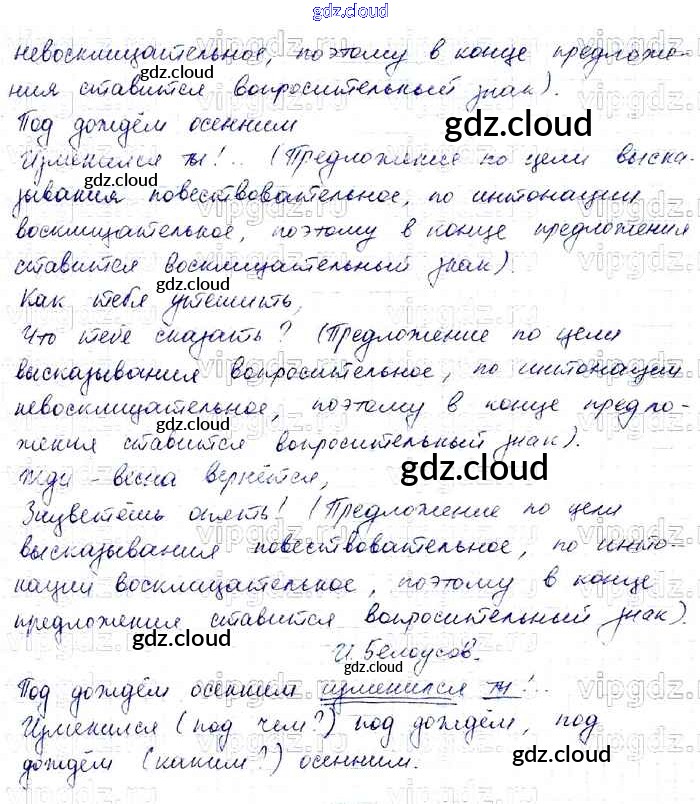 gdz.cloud
невосклицательное, поэтому в конце предложе-
ния ставится вопросительный знак).
Под дождём осенним
Изменился ты!.. (Предложение по цели выска-
зывания повествовательное, по интонации
восклицательное, поэтому в конце предложения
ставится восклицательный знак).
Как тебя утешить,
Что тебе сказать? (Предложение по цели
высказывания вопросительное, по интонации
невосклицательное, поэтому в конце предло-
жения ставится вопросительный знак).
Жди - весна вернётся,
Зацветёшь опять! (Предложение по цели
высказывания повествовательное, по инто-
нации восклицательное, поэтому в конце
предложения ставится вопросительный знак).
И. Белоусов.
Под дождём осенним изменился ты!..
Изменился (под чем?) под дождём, под
дождём (каким?) осенним.